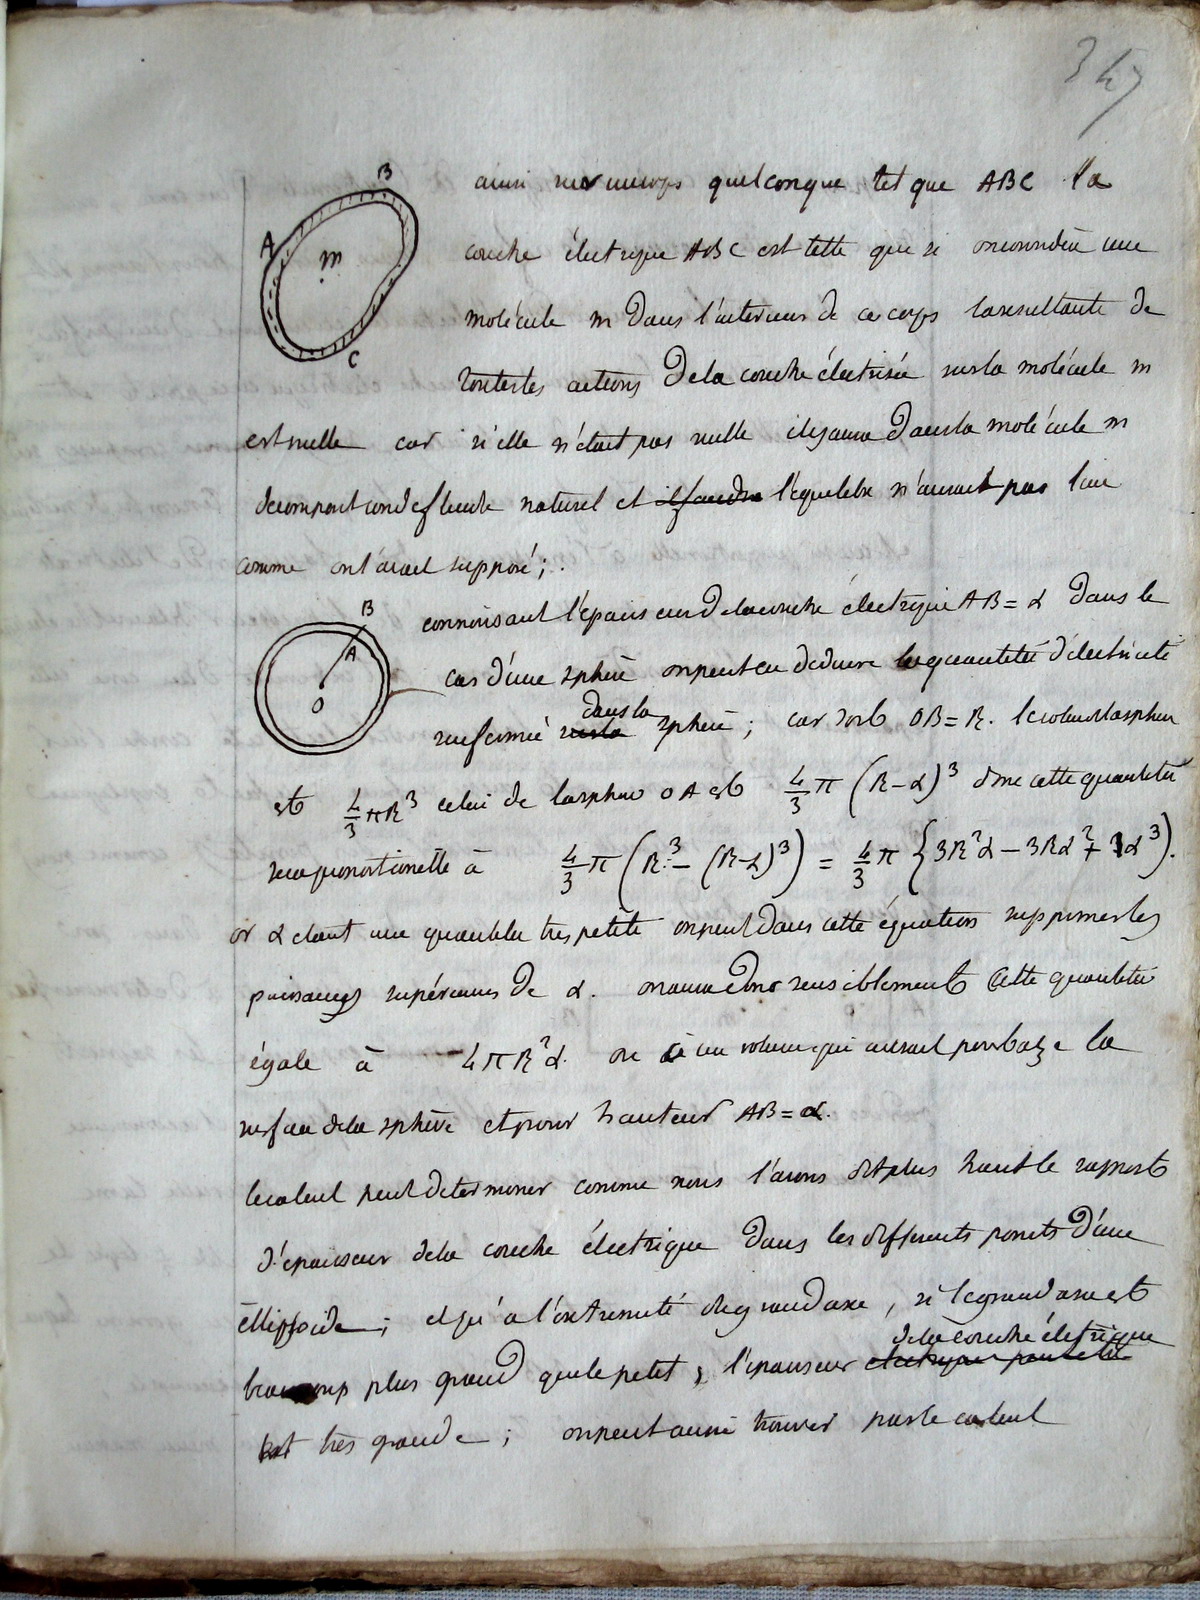 347
B
A
m
C
ainsi sur un corps quelconque tel que ABC la
couche électrique ABC est telle que si on considère une
molécule m dans l'interieur de ce corps la resultante de
toutes les actions de la couche électrisée sur la molécule m
est nulle car si elle n'était pas nulle il y aura dans la molécule m
decomposition de fluide naturel et il faudra l'équilibre n'aurait pas lieu
comme on l'avait supposé;
B
A
O
connoissant l'épaisseur de la couche électrique AB = α dans le
cas d'une sphère on peut en deduire la quantité d'électricité
renfermée sur la dans la sphère; car soit OB = R. le volume de la sphere
est 4/3 πR³ celui de la sphere OA est 4/3 π (R-α)³ donc cette quantité
sera proportionelle à 4/3 π (R³ - (R-α)³) = 4/3 π {3R²α - 3Rα² + α³).
or α étant une quantité très petite on peut dans cette équation supprimer les
puissances supérieures de α. on aura donc sensiblement cette quantité
égale à 4πR²α. ou à un volume qui aurait pour base la
surface de la sphère et pour hauteur AB = α.
le calcul peut determiner comme nous l'avons dit plus haut le rapport
d'épaisseur de la couche électrique dans les differents points d'une
ellipsoide; et qu'à l'extremité du grand axe, si le grand axe est
beaucoup plus grand que le petit, l'épaisseur de la couche électrique
est très grande; on peut aussi trouver par le calcul